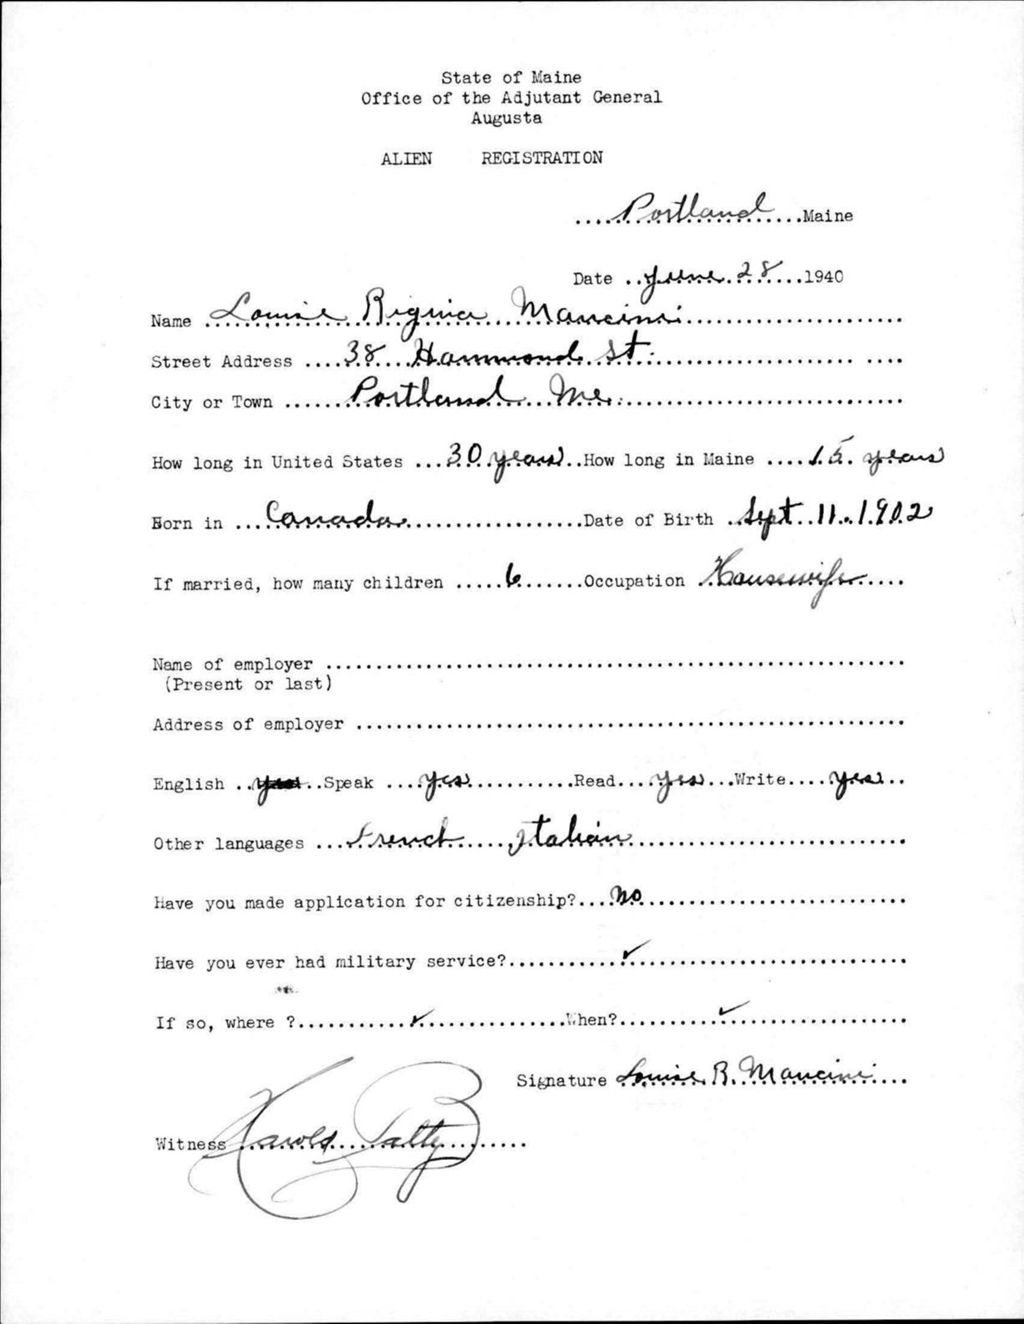 State of Maine
Office of the Adjutant General
Augusta
ALIEN REGISTRATION
....Portland....Maine
Date ..June 28...1940
Name ..Louise Rigina Mancini....
Street Address ....38 Hammond St.....
City or Town ......Portland Me.....
How long in United States ...30 years..How long in Maine ....15 years
Born in ...Canada....Date of Birth ..Sept 11, 1902
If married, how many children .....6......Occupation ..Housewife....
Name of employer ....
(Present or last)
Address of employer ....
English ....Speak ....yes....Read....yes...Write....yes..
Other languages ...French....Italian....
Have you made application for citizenship?....No....
Have you ever had military service?....✓....
If so, where ?....✓....When?....✓....
Signature Louise R. Mancini....
Witness Harold ....